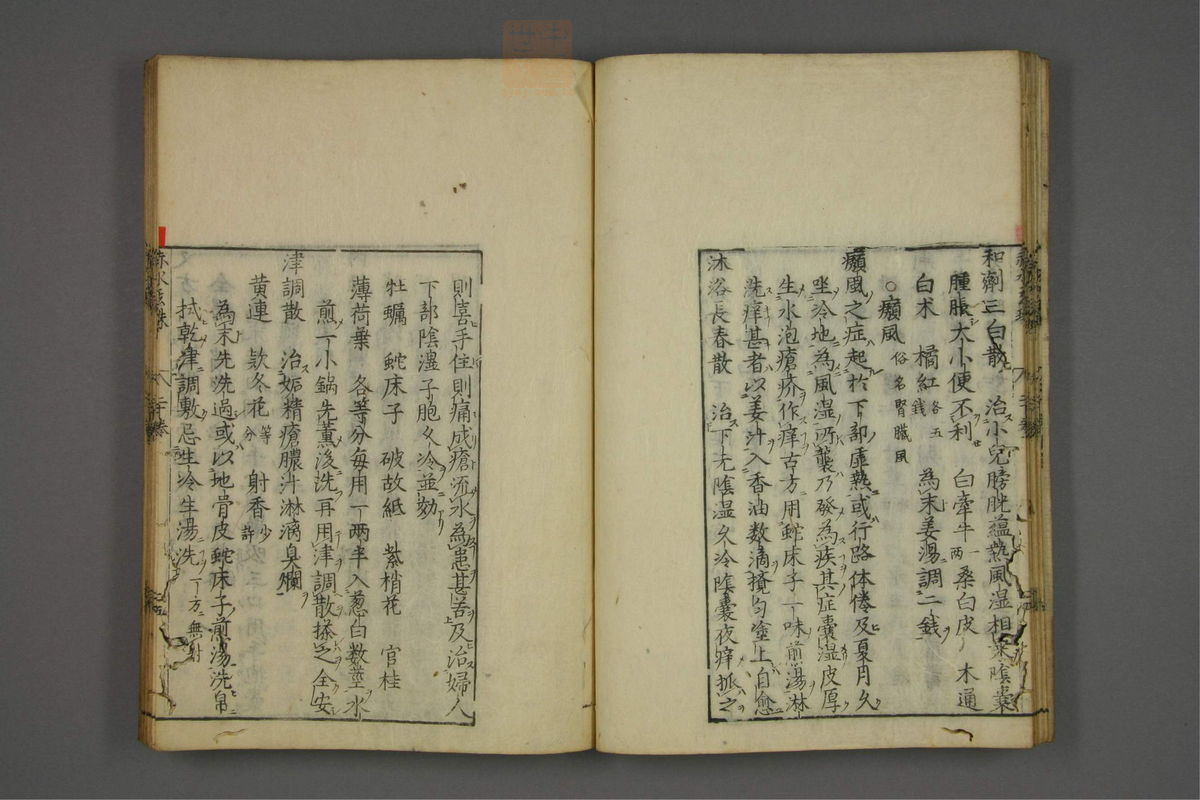 和劑三白散　治小兒膀胱蘊熱風湿相乗陰囊
腫脹大小便不利　白牽牛一兩　桑白皮　木通
白术　橘紅各五錢　為末姜湯調二錢
○癩風俗名腎臟風
癩風之症起於下部虛熱或行路体倦及夏月久
坐冷地為風湿所襲乃發為疾其症囊湿皮厚
生水泡瘡疥作痒古方用蛇床子一味煎湯淋
洗痒甚者以姜汁入香油数滴攪匀塗上自愈
沐浴長春散　治下元陰湿久冷陰囊夜痒抓之
則喜手住則痛成瘡流水為患甚苦及治婦人
下部陰湿子胞久冷並効
牡蠣　蛇床子　破故紙　紫梢花　官桂
薄荷葉　各等分每用一兩半入葱白数莖水
煎一小鍋先薰後洗再用津調散搽之全安
津調散　治妬精瘡膿汁淋漓臭爛
黄連　欵冬花等分　射香少許
為末先洗過或以地骨皮蛇床子煎湯洗帛
拭乾津調敷忌生冷生湯洗一方無射